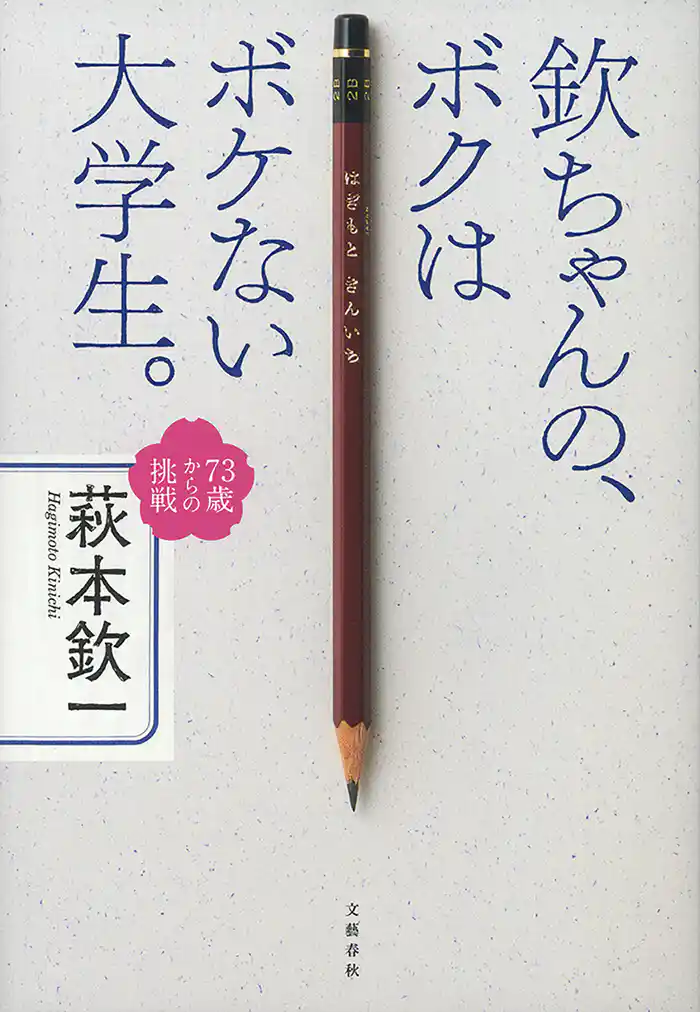 欽ちゃんの、
ボクは
ボケない
大学生。
73歳
からの
挑戦
萩本欽一
Hagimoto Kinichi
2B
2B
2B
はぎもと きんいち
文藝春秋